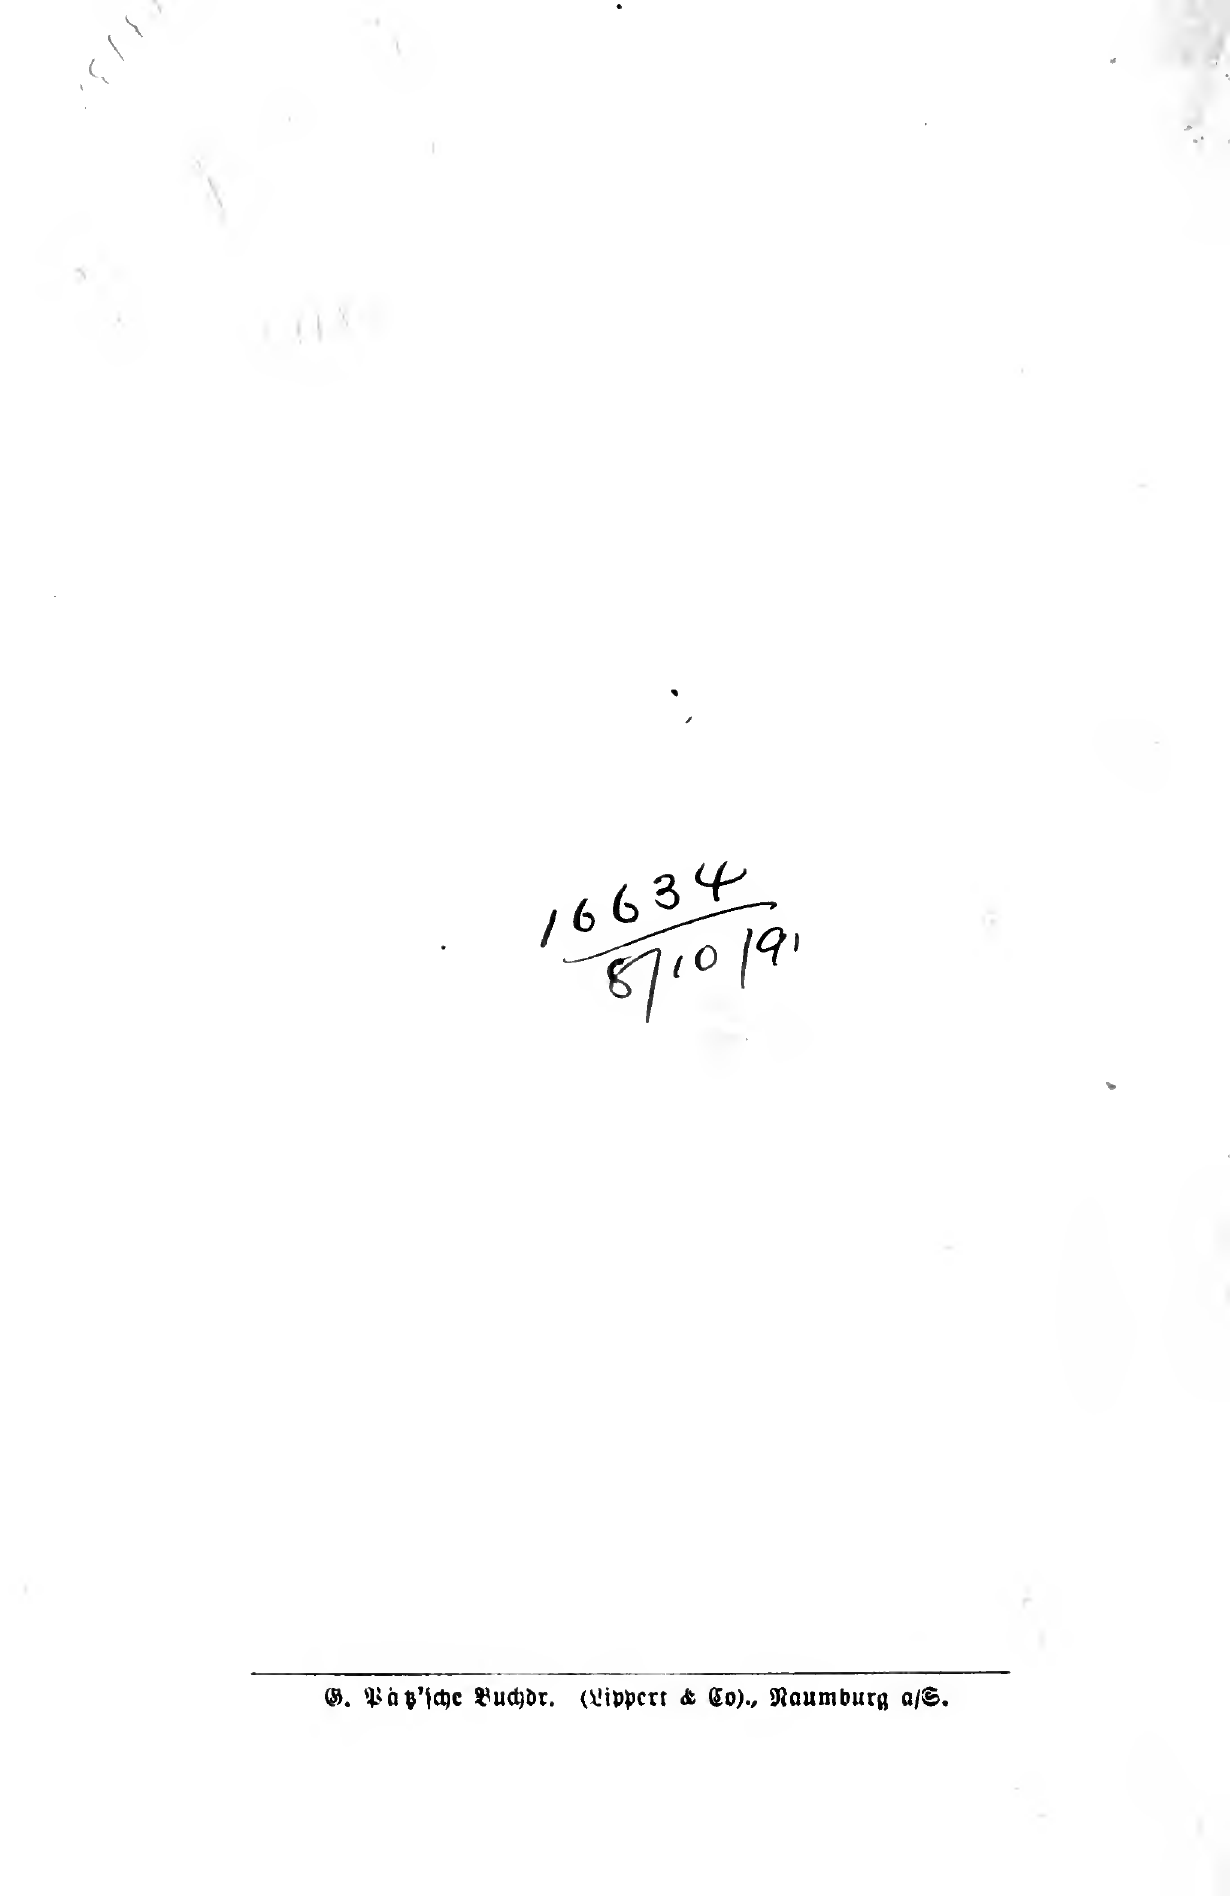 16634
8/10/91
G. Pätz'sche Buchdr. (Lippert & Co)., Naumburg a/S.